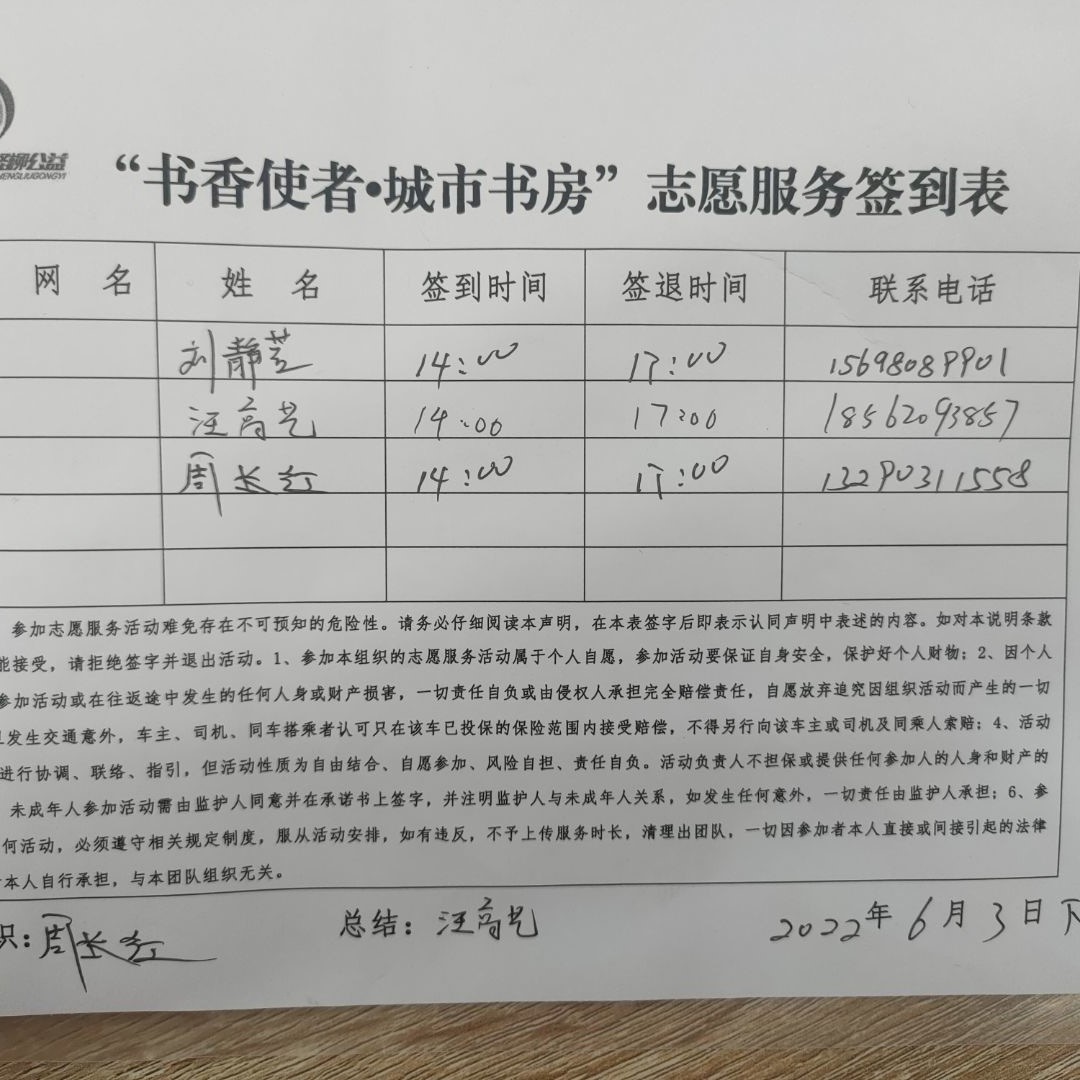 柳公益
HENGLIUGONGYI
“书香使者·城市书房”志愿服务签到表
网 名 姓 名 签到时间 签退时间 联系电话
刘静芝 14:00 17:00 15698089901
汪高艺 14:00 17:00 18562093857
周长红 14:00 17:00 13290311558
参加志愿服务活动难免存在不可预知的危险性。请务必仔细阅读本声明，在本表签字后即表示认同声明中表述的内容。如对本说明条款
能接受，请拒绝签字并退出活动。1、参加本组织的志愿服务活动属于个人自愿，参加活动要保证自身安全，保护好个人财物；2、因个人
参加活动或在往返途中发生的任何人身或财产损害，一切责任自负或由侵权人承担完全赔偿责任，自愿放弃追究因组织活动而产生的一切
旦发生交通意外，车主、司机、同车搭乘者认可只在该车已投保的保险范围内接受赔偿，不得另行向该车主或司机及同乘人索赔；4、活动
进行协调、联络、指引，但活动性质为自由结合、自愿参加、风险自担、责任自负。活动负责人不担保或提供任何参加人的人身和财产的
未成年人参加活动需由监护人同意并在承诺书上签字，并注明监护人与未成年人关系，如发生任何意外，一切责任由监护人承担；6、参
何活动，必须遵守相关规定制度，服从活动安排，如有违反，不予上传服务时长，清理出团队，一切因参加者本人直接或间接引起的法律
本人自行承担，与本团队组织无关。
织：周长红 总结：汪高艺 2022年6月3日下